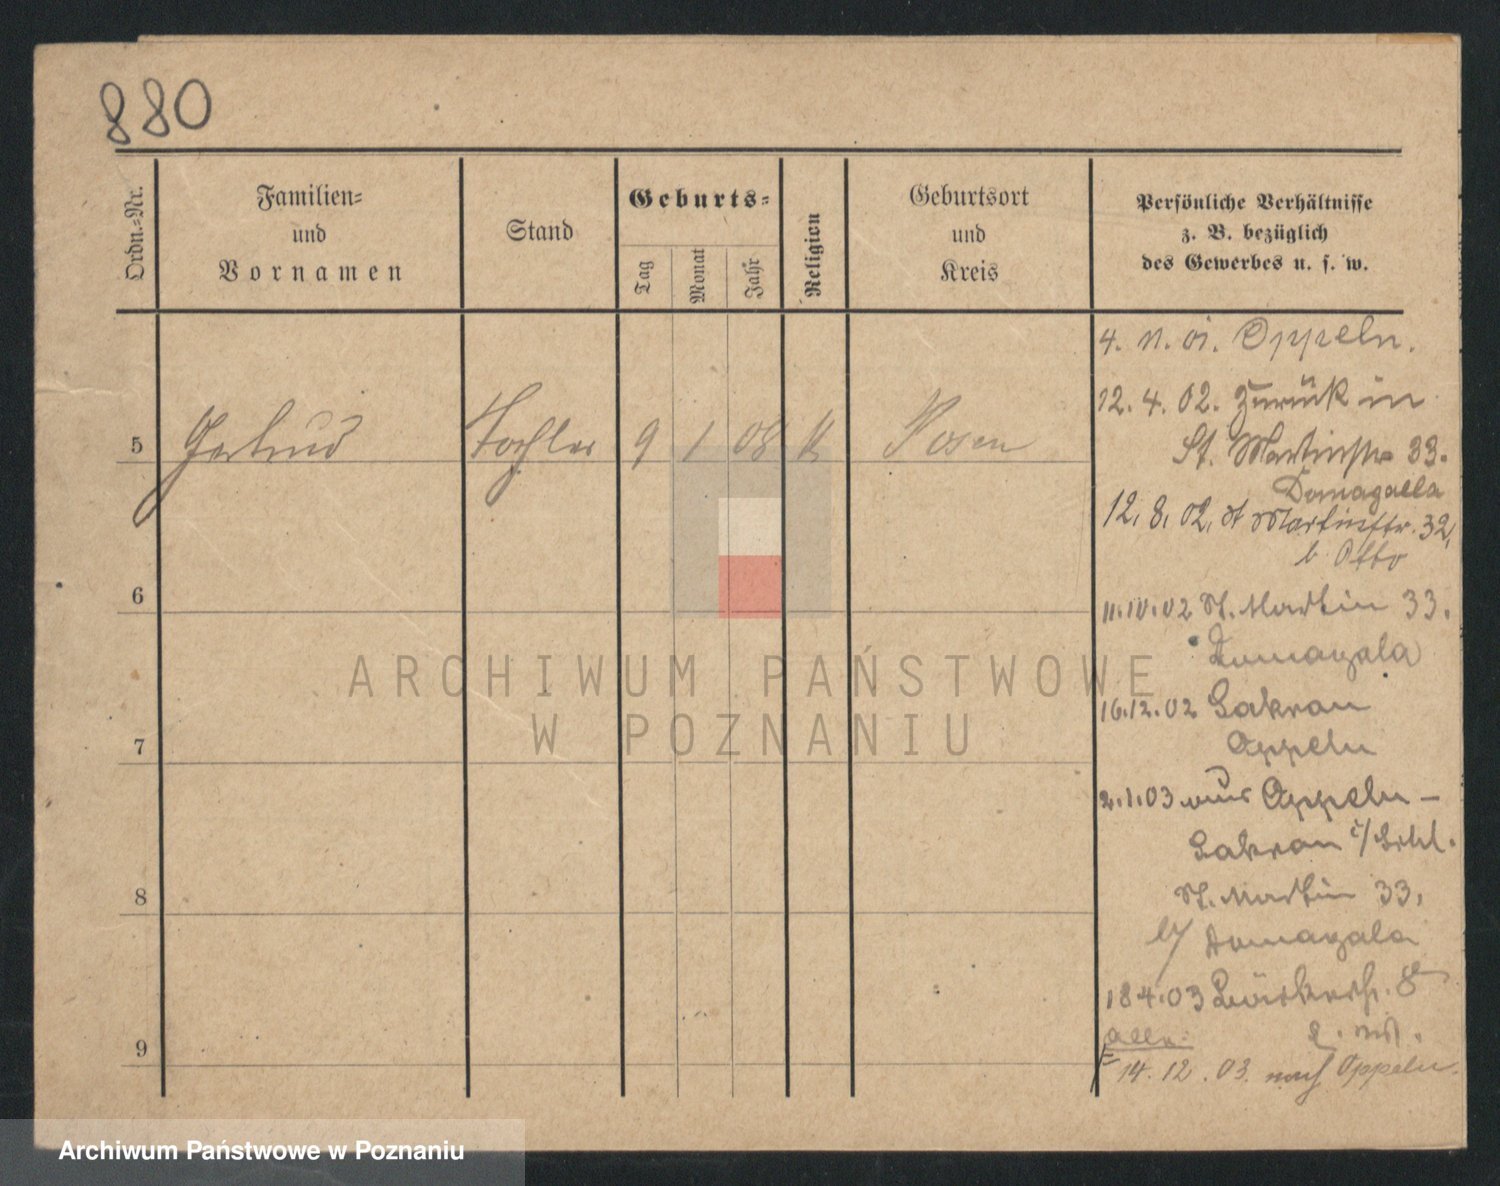 880
Ordn.=Nr.
Familien=
und
Vornamen
Stand
Geburts=
Tag
Monat
Jahr
Religion
Geburtsort
und
Kreis
Persönliche Verhältnisse
z. B. bezüglich
des Gewerbes u. s. w.
4. 11. 01. Oppeln.
12. 4. 02. Zurück in
St. Martinstr 33.
Domagalla
5 Gertrud Tochter 9 1 08 K Posen
12. 8. 02. St Martinstr. 32,
b Otto
6
11.10.02 St. Martin 33.
Domagala
ARCHIWUM PAŃSTWOWE
W POZNANIU
16.12.02 Sakrau
Oppeln
7
2.1.03 aus Oppeln –
Sakrau i/Schl.
8
St. Martin 33,
b/ Domagala
18 4.03 8
9
alln:
14. 12. 03. nach Oppeln.
Archiwum Państwowe w Poznaniu